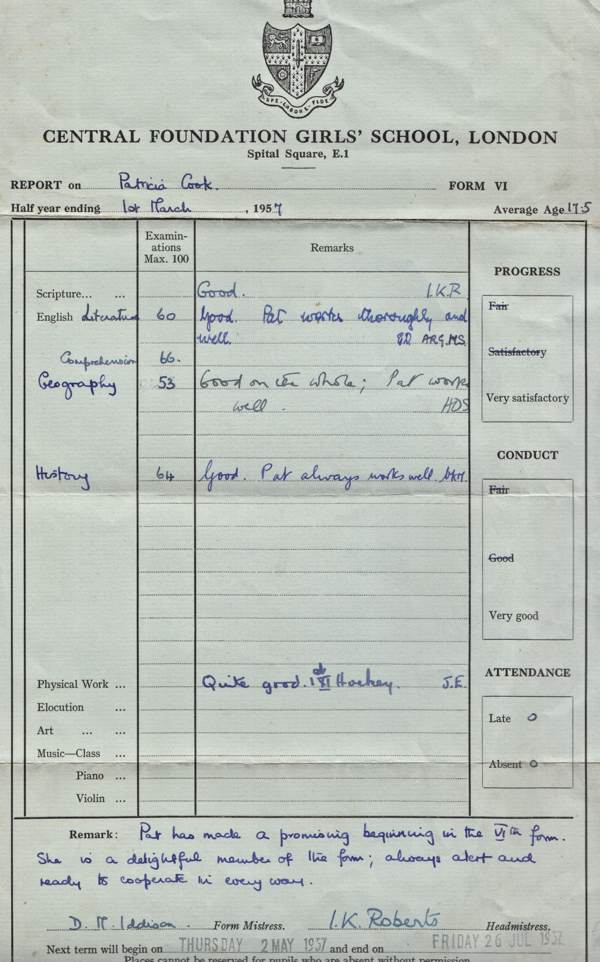 SPE LABORE FIDE
CENTRAL FOUNDATION GIRLS' SCHOOL, LONDON
Spital Square, E.1
REPORT on Patricia Cook. FORM VI
Half year ending 1st March, 1957 Average Age 17·5
Examinations Max. 100 Remarks
PROGRESS
Scripture... ... Good. I.K.R
Fair
English Literature 60 Good. Pat works thoroughly and
well. ARG.MS.
Satisfactory
Comprehension 66.
Geography 53 Good on the whole; Pat works
Very satisfactory
well. HDS
CONDUCT
History 64 Good. Pat always works well.
Fair
Good
Very good
ATTENDANCE
Physical Work ... Quite good. XI Hockey. J.E.
Elocution ...
Late 0
Art ... ...
Music—Class ...
Absent 0
Piano ...
Violin ...
Remark: Pat has made a promising beginning in the VIth form.
She is a delightful member of the form; always alert and
ready to cooperate in every way.
D. M. Iddison. Form Mistress. I.K. Roberts Headmistress.
Next term will begin on THURSDAY 2 MAY 1957 and end on FRIDAY 26 JUL 1957
Places cannot be reserved for pupils who are absent without permission